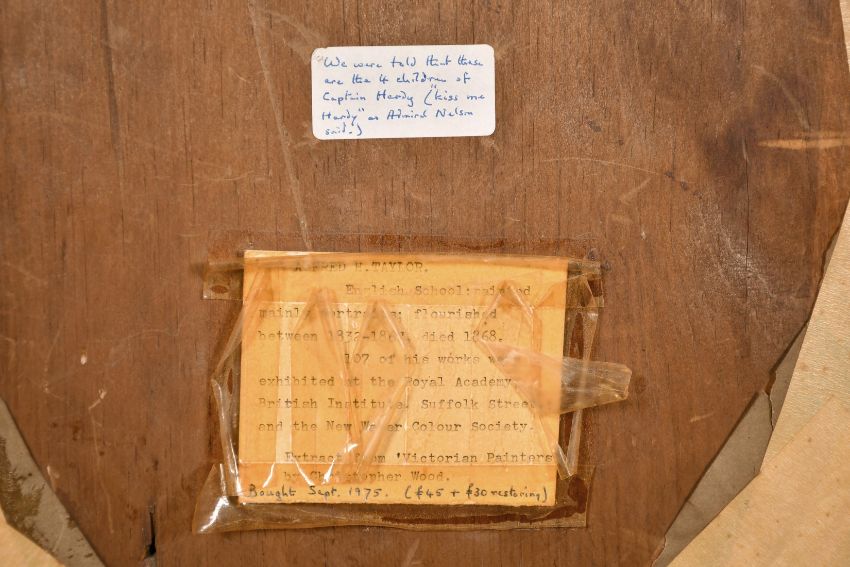 We were told that these
are the 4 children of
Captain Hardy ("kiss me
Hardy" as Admiral Nelson
said.)
H. TAYLOR.
English School: painted
mainly portraits; flourished
between 1832-186 died 1868.
107 of his works
exhibited at the Royal Academy,
British Institute, Suffolk Street,
and the New Water Colour Society.
Extract from 'Victorian Painters
by Christopher Wood.
Bought Sept. 1975. (£45 + £30 restoring)